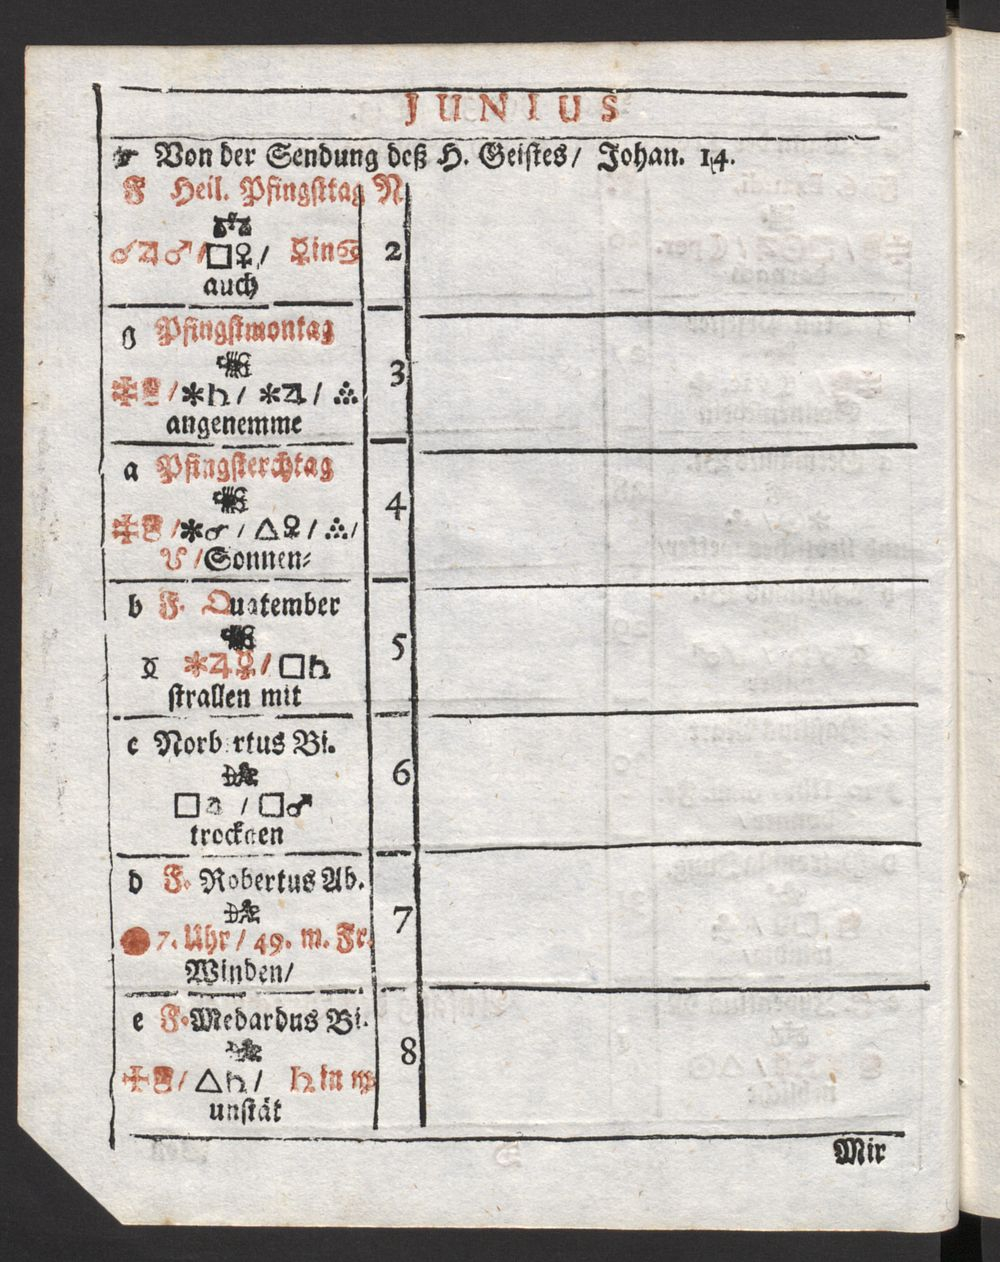 JUNIUS
☞ Von der Sendung deß H. Geistes/ Johan. 14.
F Heil. Pfingsttag N
♎
☌♃♂/□♀/ ☿in♋ 2
auch
g Pfingstmontag
♏
/⚹♄/ ⚹♃/ ∴ 3
angenemme
a Pfingsterchtag
♏
/⚹♂/ △♀/ ∴/ 4
/Sonnen⸗
b F. Quatember
♏
⚹♃☿/ □♄ 5
strallen mit
c Norb rtus Bi.
♐
□♃ / □♂ 6
trocknen
d F. Robertus Ab.
♐
7. Uhr/ 49. m. Fr. 7
Winden/
e F. Medardus Bi.
/ △♄/ ♄in ♍ 8
unstät
Mir